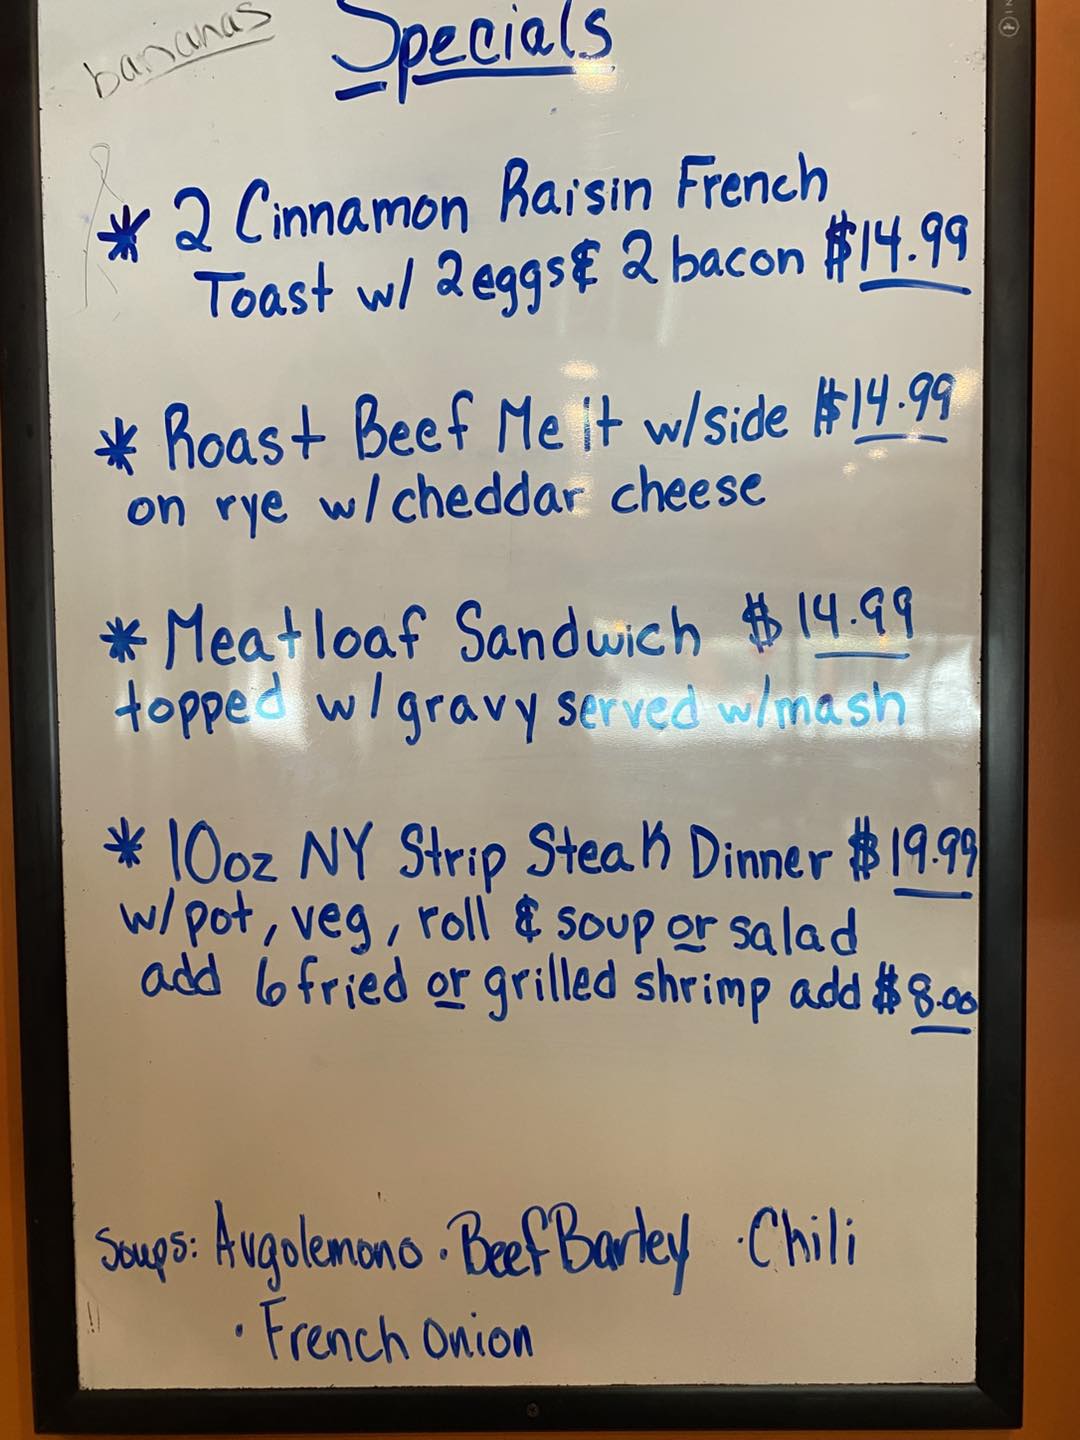 bananas
Specials
* 2 Cinnamon Raisin French
Toast w/ 2 eggs & 2 bacon $14.99
* Roast Beef Melt w/side $14.99
on rye w/cheddar cheese
* Meatloaf Sandwich $14.99
topped w/gravy served w/mash
* 10oz NY Strip Steak Dinner $19.99
w/pot, veg, roll & soup or salad
add 6 fried or grilled shrimp add $8.00
Soups: Avgolemono · Beef Barley · Chili
· French Onion
!!